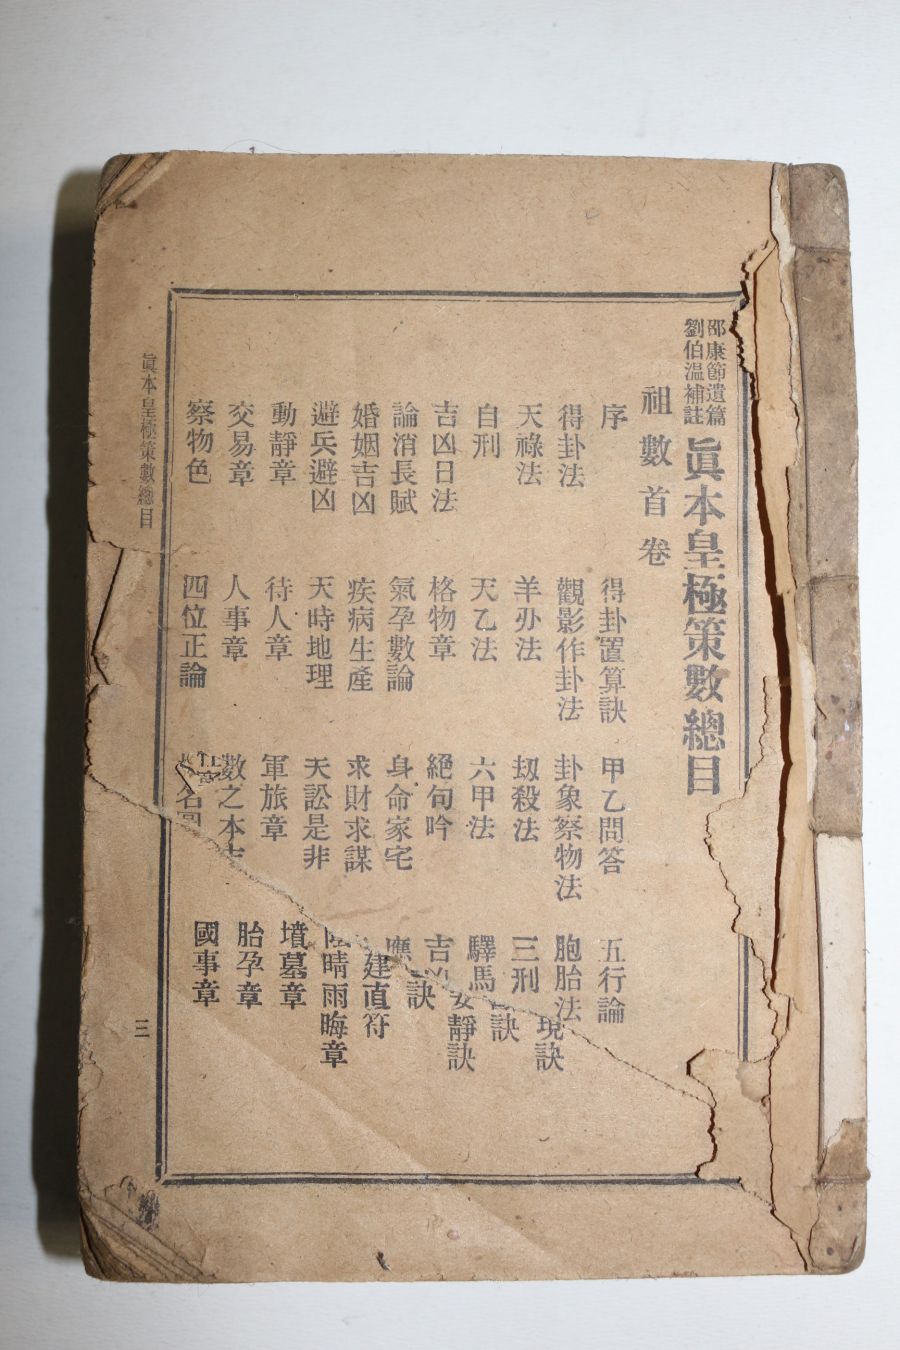 邵康節遺篇
劉伯温補註
眞本皇極策數總目
祖數首卷
序 得卦置算訣 甲乙問答 五行論
得卦法 觀影作卦法 卦象察物法 胞胎法 現訣
天祿法 羊刅法 刼殺法 三刑 訣
自刑 天乙法 六甲法 驛馬 安靜訣
吉凶日法 格物章 絕句吟 吉
論消長賦 氣孕數論 身命家宅 應 訣
婚姻吉凶 疾病生產 求財求謀 建直符
避兵避凶 天時地理 天訟是非 晴雨晦章
動靜章 待人章 軍旅章 墳墓章
交易章 人事章 數之本 胎孕章
察物色 四位正論 名 國事章
眞本皇極策數總目
三